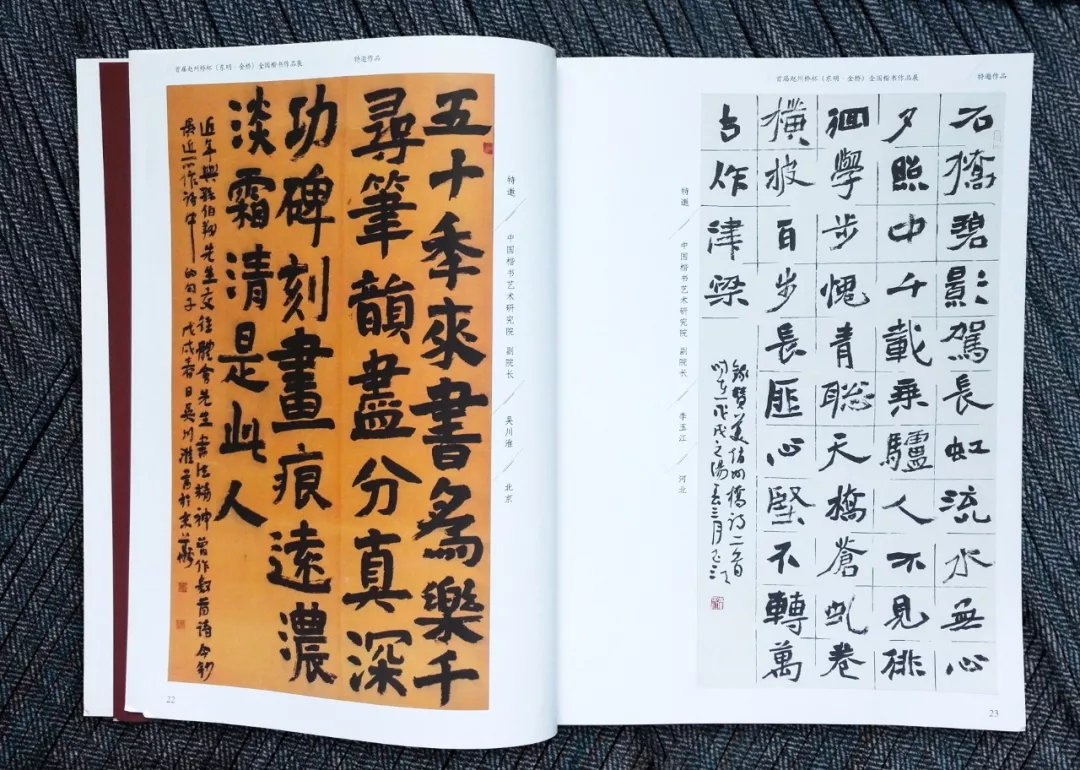 首届赵州桥杯（东明·金桥）全国楷书作品展 特邀作品
五十秊來書為樂千
尋筆韻盡分真深
功碑刻畫痕遠濃
淡霜清是此人
近年與孫伯翔先生交往體會先生書法精神曾作數首詩今鈔
最近作詩中的句子戊戌春日吳川淮書於京華
特邀 中国楷书艺术研究院 副院长 吴川淮 北京
22
首届赵州桥杯（东明·金桥）全国楷书作品展 特邀作品
石橋碧影駕長虹流水無心
夕照中千載乘驢人不見徘
徊學步愧青聰天橋蒼虬卷
橫披百步長匪心堅不轉萬
古作津梁
錄贊美趙州橋詩二首
戊戌之陽春三月玉江
特邀 中国楷书艺术研究院 副院长 李玉江 河北
23